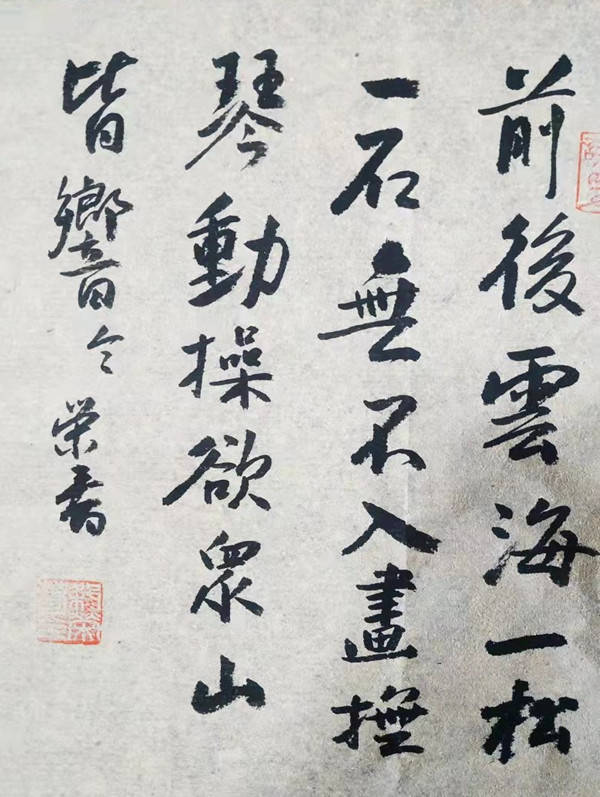 前後雲海一松
一石無不入畫撫
琴動操欲眾山
皆響